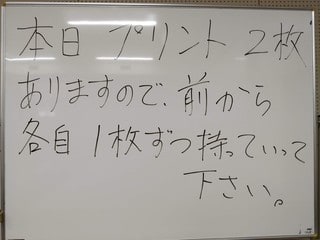 本日 プリント 2枚
ありますので、前から
各自 1枚ずつ持っていって
下さい。